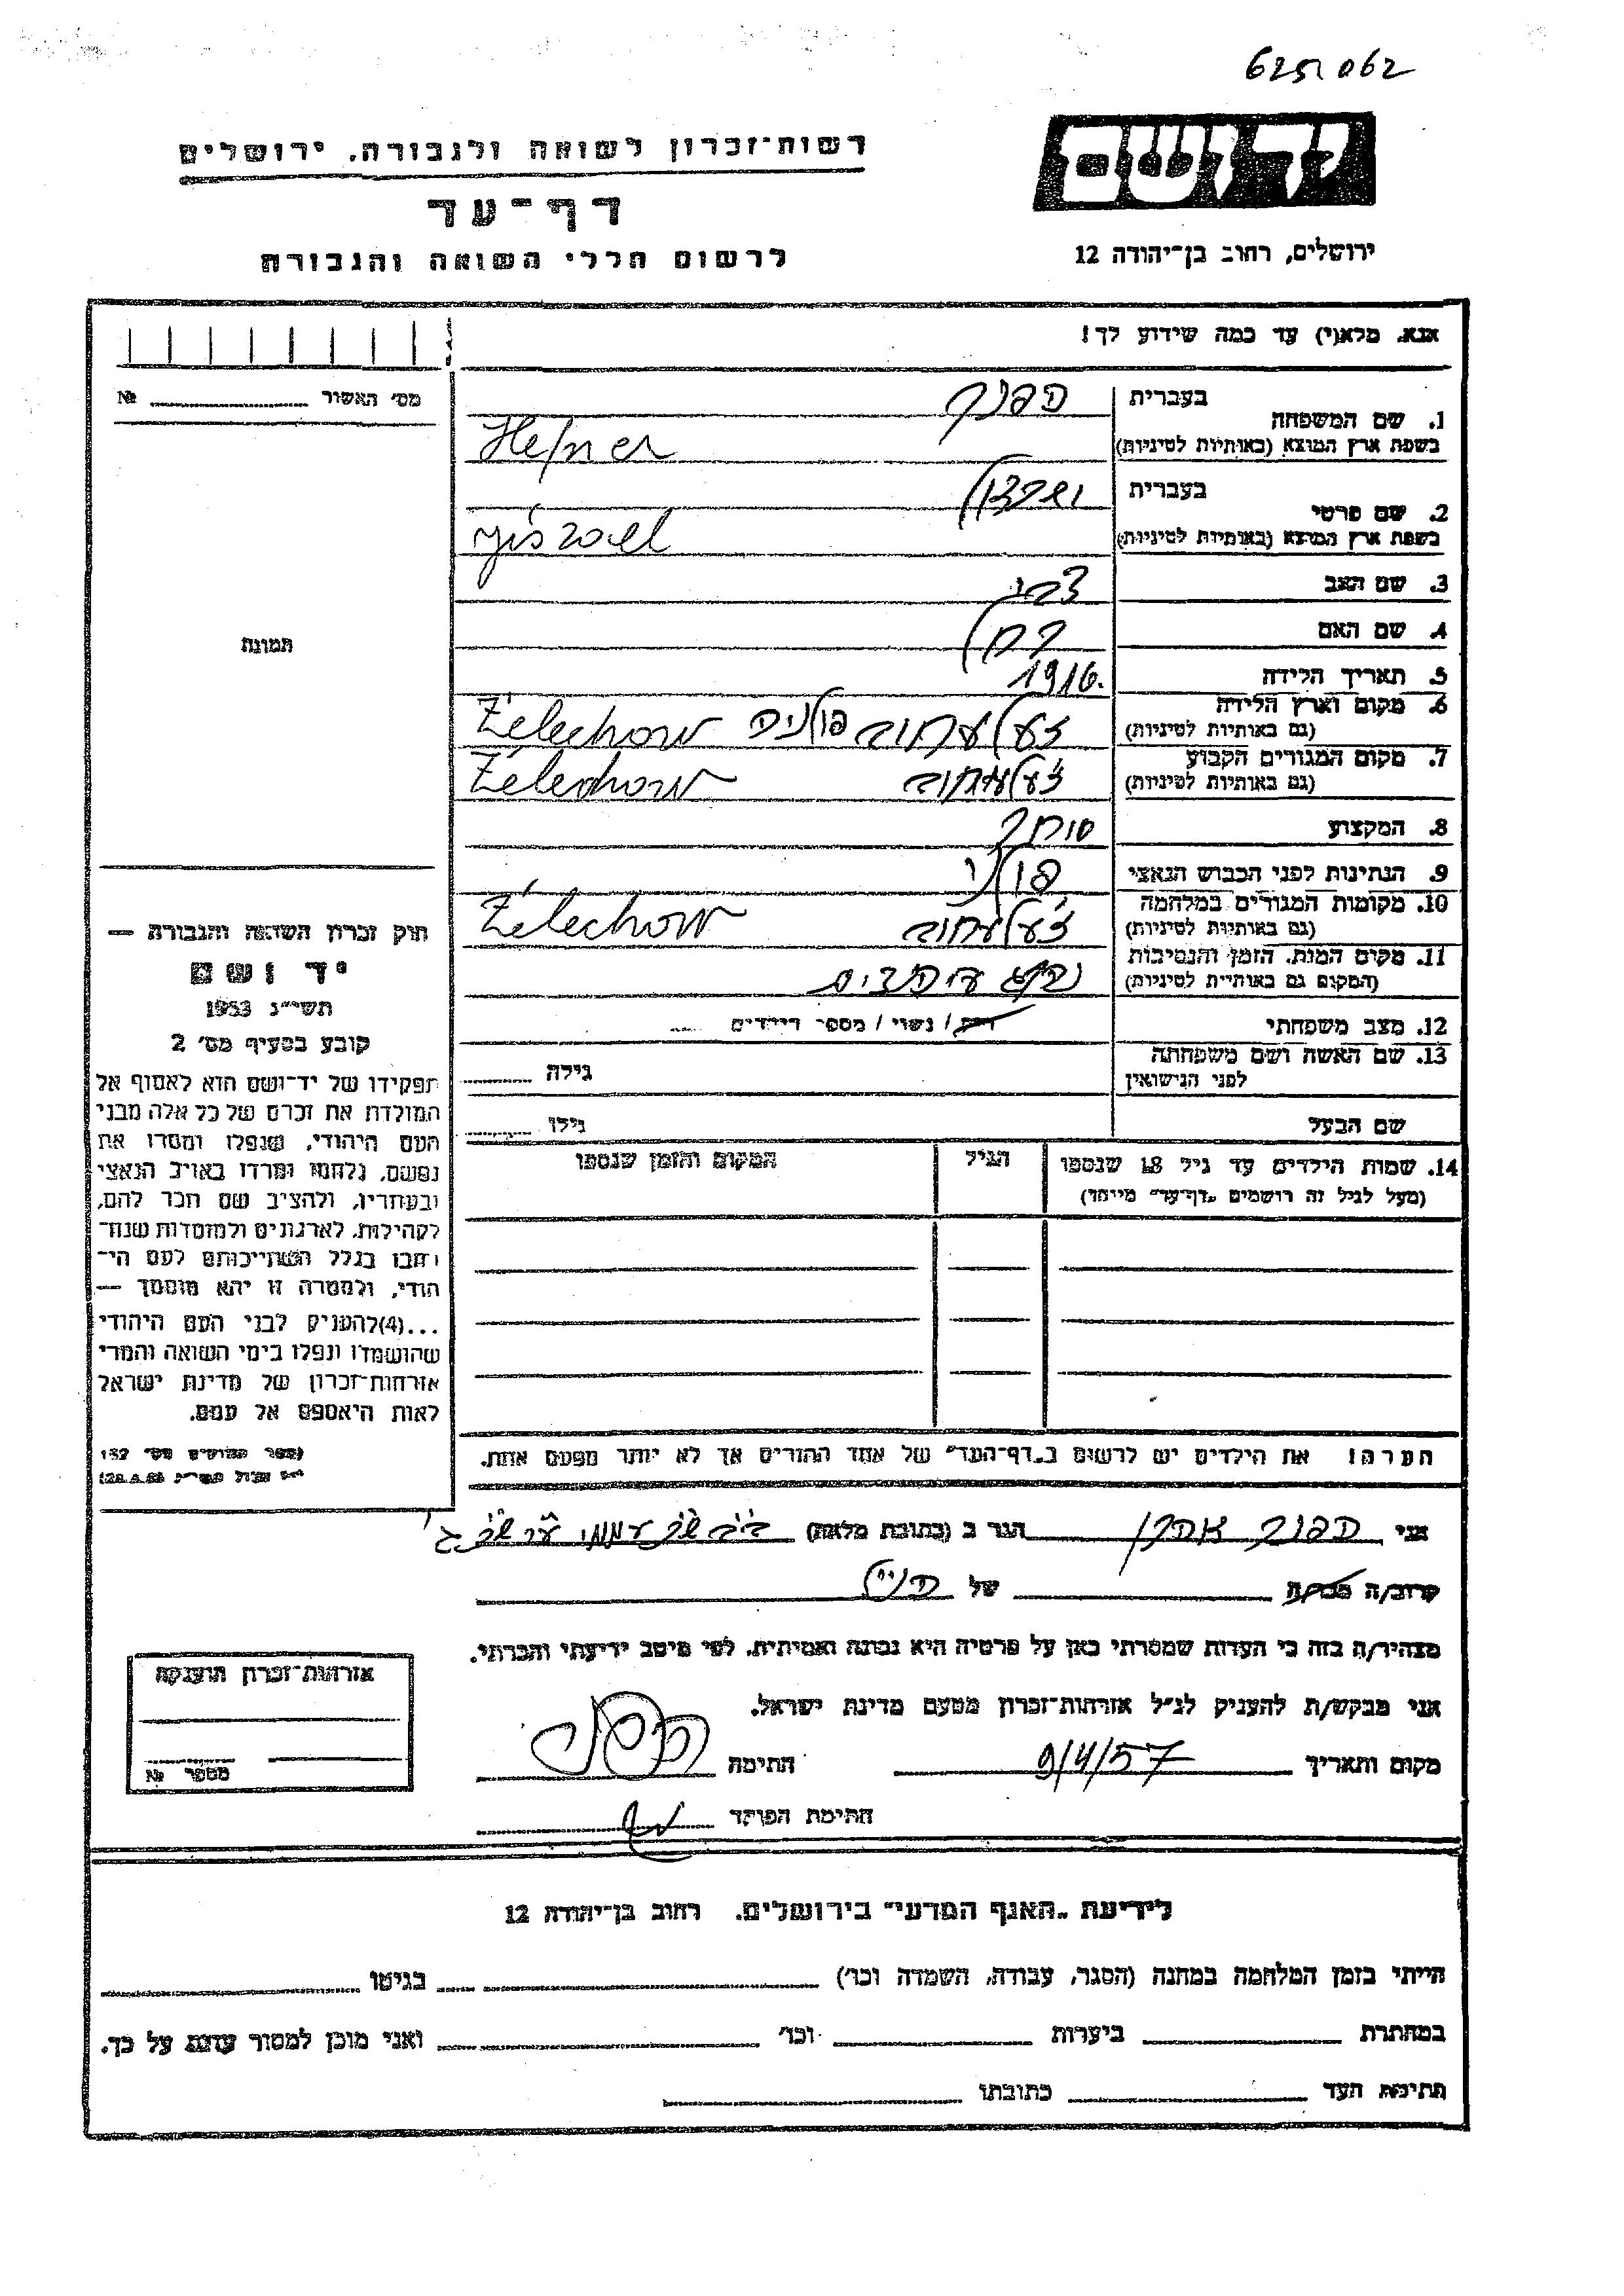 625062
רשות־זכרון לשואה ולגבורה, ירושלים
יד ושם
דף־עד
ירושלים, רחוב בן־יהודה 12
לרשום חללי השואה והגבורה
אנא, מלא(י) עד כמה שידוע לך!
מס׳ האשור № 
1. שם המשפחה בעברית הפנר
בשפת ארץ המוצא (באותיות לטיניות) Hefner
2. שם פרטי בעברית ישראל
בשפת ארץ המוצא (באותיות לטיניות)
3. שם האב צבי
4. שם האם רחל
תמונה
5. תאריך הלידה 1916.
6. מקום וארץ הלידה (גם באותיות לטיניות) זעלעחוב פולניה Żelechow
7. מקום המגורים הקבוע (גם באותיות לטיניות) ז׳עלעחוב Żelechow
8. המקצוע סוחר
9. הנתינות לפני הכבוש הנאצי פולני
10. מקומות המגורים במלחמה (גם באותיות לטיניות) ז׳עלעחוב Żelechow
11. מקום המות, הזמן והנסיבות (המקום גם באותיות לטיניות)
12. מצב משפחתי רווק / נשוי / מספר הילדים
13. שם האשה ושם משפחתה לפני הנישואין גילה
שם הבעל גילו
14. שמות הילדים עד גיל 18 שנספו הגיל המקום והזמן שנספו
(מעל לגיל זה רושמים „דף־עד״ מיוחד)
חוק זכרון השואה והגבורה —
יד ושם
תשי״ג 1953
קובע בסעיף מס׳ 2
תפקידו של יד־ושם הוא לאסוף אל
המולדת את זכרם של כל אלה מבני
העם היהודי, שנפלו ומסרו את
נפשם, נלחמו ומרדו באויב הנאצי
ובעוזריו, ולהציב שם וזכר להם,
לקהילות, לארגונים ולמוסדות שנח־
רבו בגלל השתייכותם לעם הי־
הודי, ולמטרה זו יהא מוסמך —
...(4)להעניק לבני העם היהודי
שהושמדו ונפלו בימי השואה והמרי
אזרחות־זכרון של מדינת ישראל
לאות היאספם אל עמם.
(ספר החוקים מס׳ 132
הערה! את הילדים יש לרשום ב„דף־העד״ של אחד ההורים אך לא יותר מפעם אחת.
אני הפנר אהרן הגר ב (כתובת מלאה)
קרוב/ה מכר/ה של
מצהיר/ה בזה כי העדות שמסרתי כאן על פרטיה היא נכונה ואמיתית, לפי מיטב ידיעתי והכרתי.
אני מבקש/ת להעניק לנ״ל אזרחות־זכרון מטעם מדינת ישראל.
מקום ותאריך 9/4/57 חתימה
חתימת הפוקד
אזרחות־זכרון הוענקה
מספר №
לידיעת „האגף המדעי״ בירושלים, רחוב בן־יהודה 12
הייתי בזמן המלחמה במחנה (הסגר, עבודה, השמדה וכו׳) בגיטו
במחתרת ביערות וכו׳ ואני מוכן למסור עדות על כך.
חתימת העד כתובתו